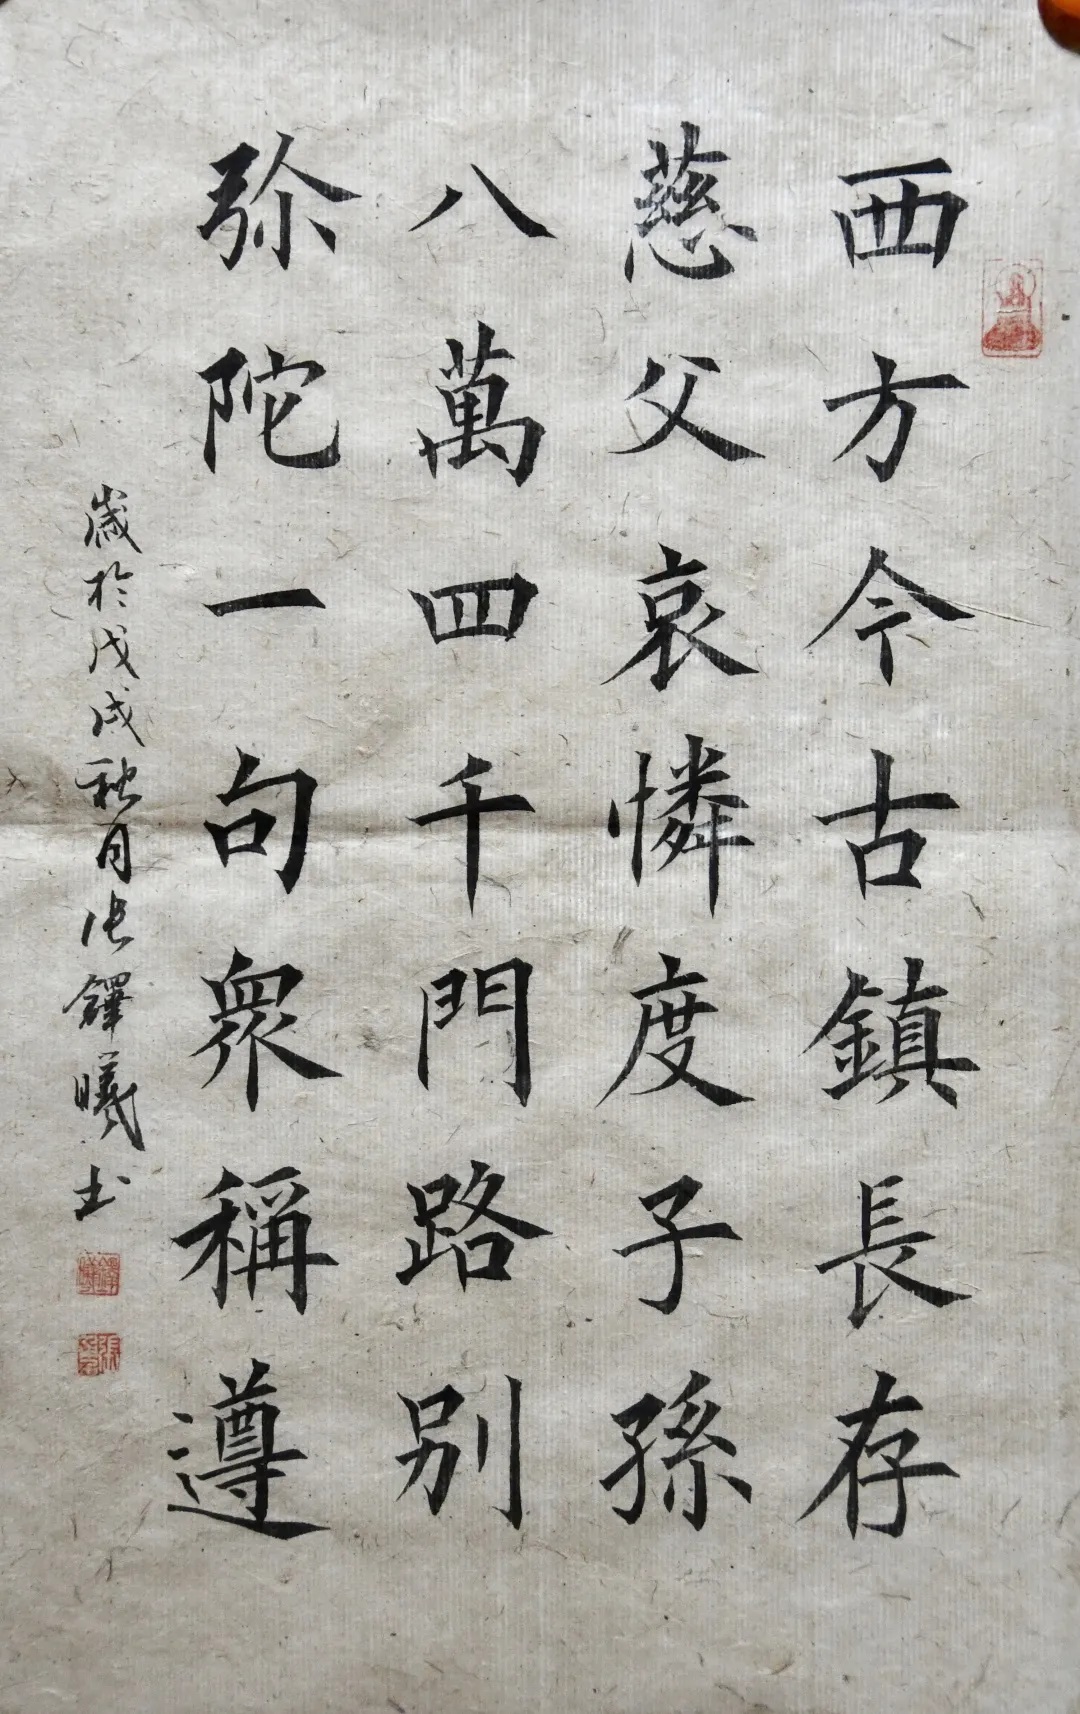 西方今古鎮長存
慈父哀憐度子孫
八萬四千門路別
弥陀一句衆稱遵
歲於戊戌秋月張鐸曦书